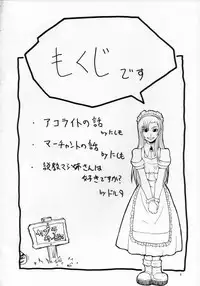 もくじです
・アコライトの話
by たくも
・マーチャントの話
by たくも
・説教マジ姉さんは
好きですか?
by ドルタ